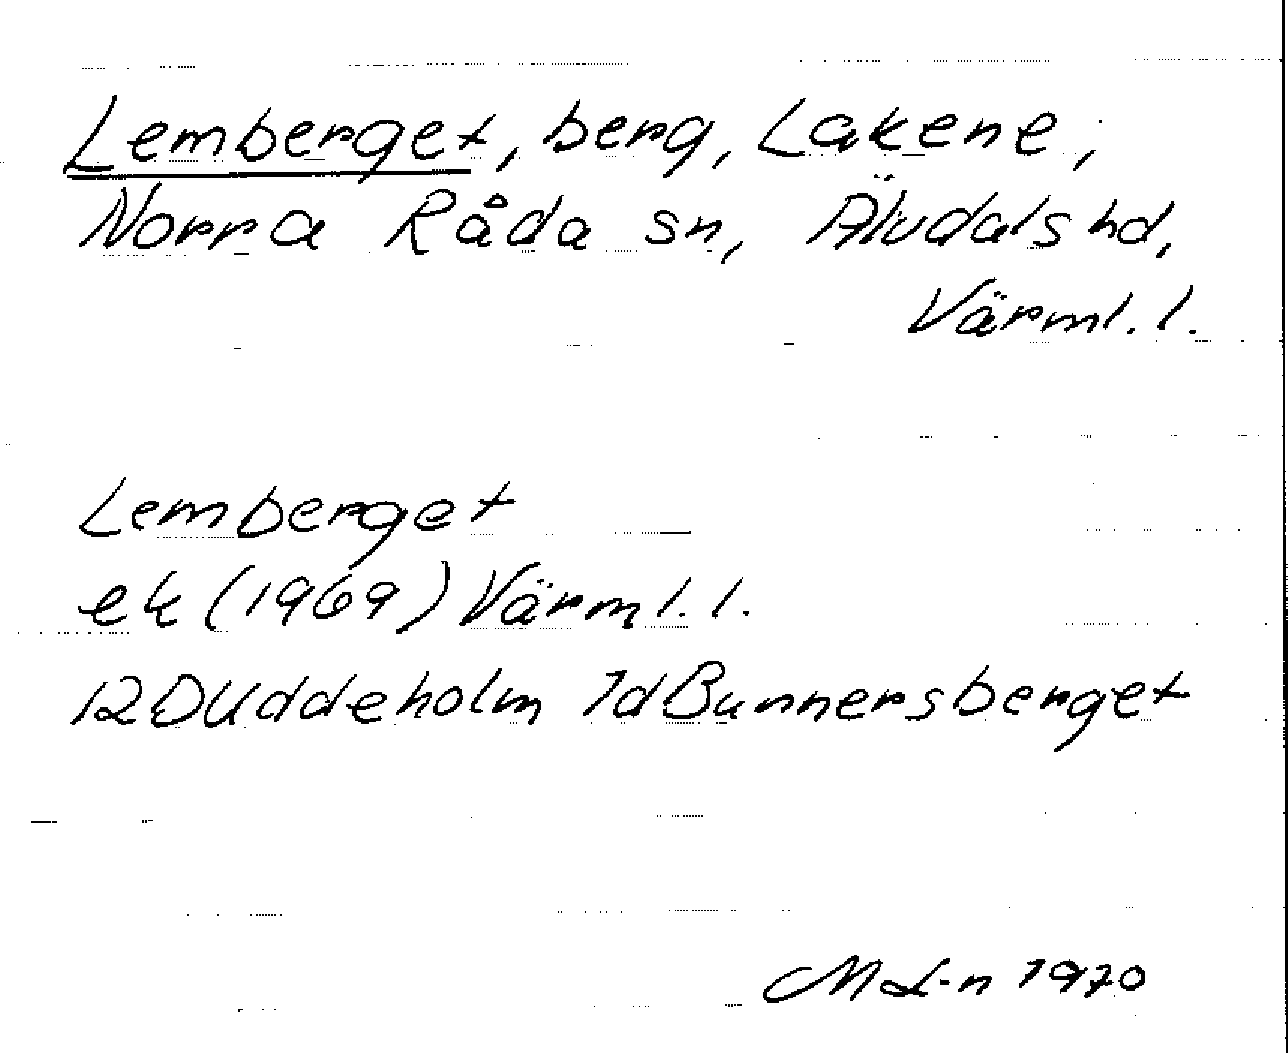 Lemberget, berg, Lakene,
Norra Råda sn, Älvdals hd,
Värml. l.
Lemberget
ek (1969) Värml. l.
12D Uddeholm 7d Bunnersberget
M L-n 1970